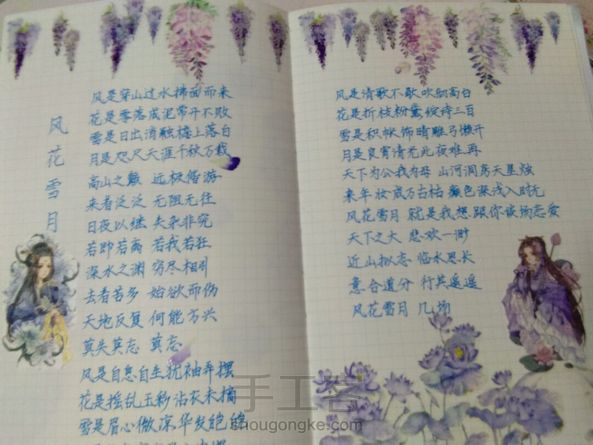 风花雪月
风是穿山过水拂面而来
花是零落成泥常开不败
雪是日出消融檐上落白
月是咫尺天涯千秋万载
高山之巅 远极偕游
来者泛泛 无阻无住
日夜以继 失杂非究
若即若离 若我若狂
深水之渊 穷尽相引
去者苦多 始欲而伤
天地反复 何能方兴
莫失莫忘 莫忘
风是自息自生扰袖弄摆
花是摇乱玉秒沾衣未摘
雪是眉心微凉华发皑
风是清歌不歇吹彻高台
花是折枝粉黛绽诗三百
雪是积帐饰晴雕弓懒开
月是良宵清光此夜难再
天下为公我为母 山河洞房天星烛
来年妆成万古枯 颜色深浅入时无
风花雪月 就是我想跟你谈场恋爱
天下之大 悲欢一
近山拟态 临水思长
意合道分 行共遥遥
风花雪月 几场
手工客
shougongke.com